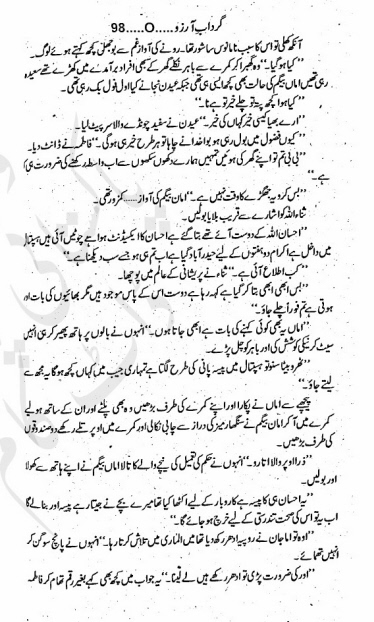 گرداب آرزو.....O.....98
آنکھ کھلی تو اس کا سبب نامانوس سا شور تھا۔ رونے کی آواز غم سے بوجھل کچھ کہتے ہوئے لوگ۔
"کیا ہو گیا۔" وہ گھبرا کر کمرے سے باہر نکلے گھر کے بھی افراد برآمدے میں کھڑے تھے سعیدہ
رہی تھیں اماں بیگم کی حالت بھی کچھ ایسی ہی تھی جبکہ عیدن نجانے کیا اول فول بک رہی تھی۔
"کیا ہوا کچھ پتہ تو چلے خیر تو ہے نا۔"
"ارے بھیا کیسی خیر کہاں کی خیر۔" عیدن نے سفید چونڈے والا سر پیٹ لیا۔
"کیوں فضول میں بول رہی ہو خدا نے چاہا تو ہر طرح خیر ہی ہوگی۔" فاطمہ نے ڈانٹ دیا۔
"بی بی تم تو اپنے گھر کی ہوئیں تمہیں ہمارے دکھوں سکھوں سے اب واسطہ رکھنے کی ضرورت ہی کیا
ہے۔"
"بس کرو یہ جھگڑے کا وقت نہیں ہے۔" اماں بیگم کی آواز..... کمزور تھی۔
ثناء اللہ کو اشارے سے قریب بلایا بولیں۔
"احسان اللہ کے دوست آئے تھے بتا گئے ہے احسان کا ایکسیڈنٹ ہوا ہے چوٹیں آئیں ہیں ہسپتال
میں داخل ہے اکرام دو ہفتوں کے لیے حیدرآباد گیا ہے اب تم ہی ہو جسے سب دیکھنا ہے۔"
"کب اطلاع آئی ہے۔" ثناء نے پریشانی کے عالم میں پوچھا۔
"بس ابھی ابھی بتا کر گیا ہے کہہ رہا ہے دوست اس کے پاس موجود ہیں مگر بھائیوں کی بات اور
ہوتی ہے تم فوراً چلے جاؤ۔"
"اماں یہ بھی کوئی کہنے کی بات ہے ابھی جاتا ہوں۔" انہوں نے بالوں پر ہاتھ پھیر کر ہی انہیں
سیٹ کرنے کی کوشش کی اور باہر کو چل پڑے۔
"ٹھہرو بیٹا سنو تو ہسپتال میں پیسہ پانی کی طرح لگتا ہے تمہاری جیب میں کہاں کچھ ہوگا یہ مجھ سے
لیتے جاؤ۔"
پیچھے سے اماں نے پکارا اور اپنے کمرے کی طرف بڑھیں وہ بھی پلٹے اور ان کے ساتھ ہو لیے
کمرے میں آ کر اماں بیگم نے سنگھار میز کی دراز سے چابی نکالی اور کمرے میں اوپر تلے رکھے دو صندوقوں
کی طرف بڑھیں۔
"ذرا اوپر والا اتارو۔" انہوں نے حکم کی تعمیل کی نیچے والے کا تالا اماں بیگم نے اپنے ہاتھ سے کھولا
اور بولیں۔
"یہ احسان ہی کا پیسہ ہے کاروبار کے لیے اکٹھا کیا تھا میرے بچے نے جیتا رہے پیسہ اور بنا لے گا
اب یہ تو اس کی صحت تندرستی کے لیے خرچ ہو جائے گا۔"
"اوہ تو اماں جان نے روپیہ ادھر رکھ دیا تھا میں الماری میں تلاش کرتا رہا۔" انہوں نے پانچ سو گن کر
انہیں تھمائے۔
"اور کی ضرورت پڑی تو ادھر رکھے ہیں لے لینا۔" یہ جواب میں کچھ بھی کہے بغیر رقم تھام کر فاطمہ